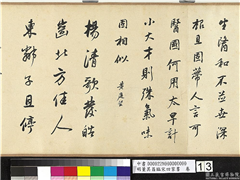 生醫和不並世深
根且固蒂人言可
醫國何用太早計
小大才則殊氣味
固相似
黃庭堅
揚清歌發皓
齒北方佳人
東鄰子且
13